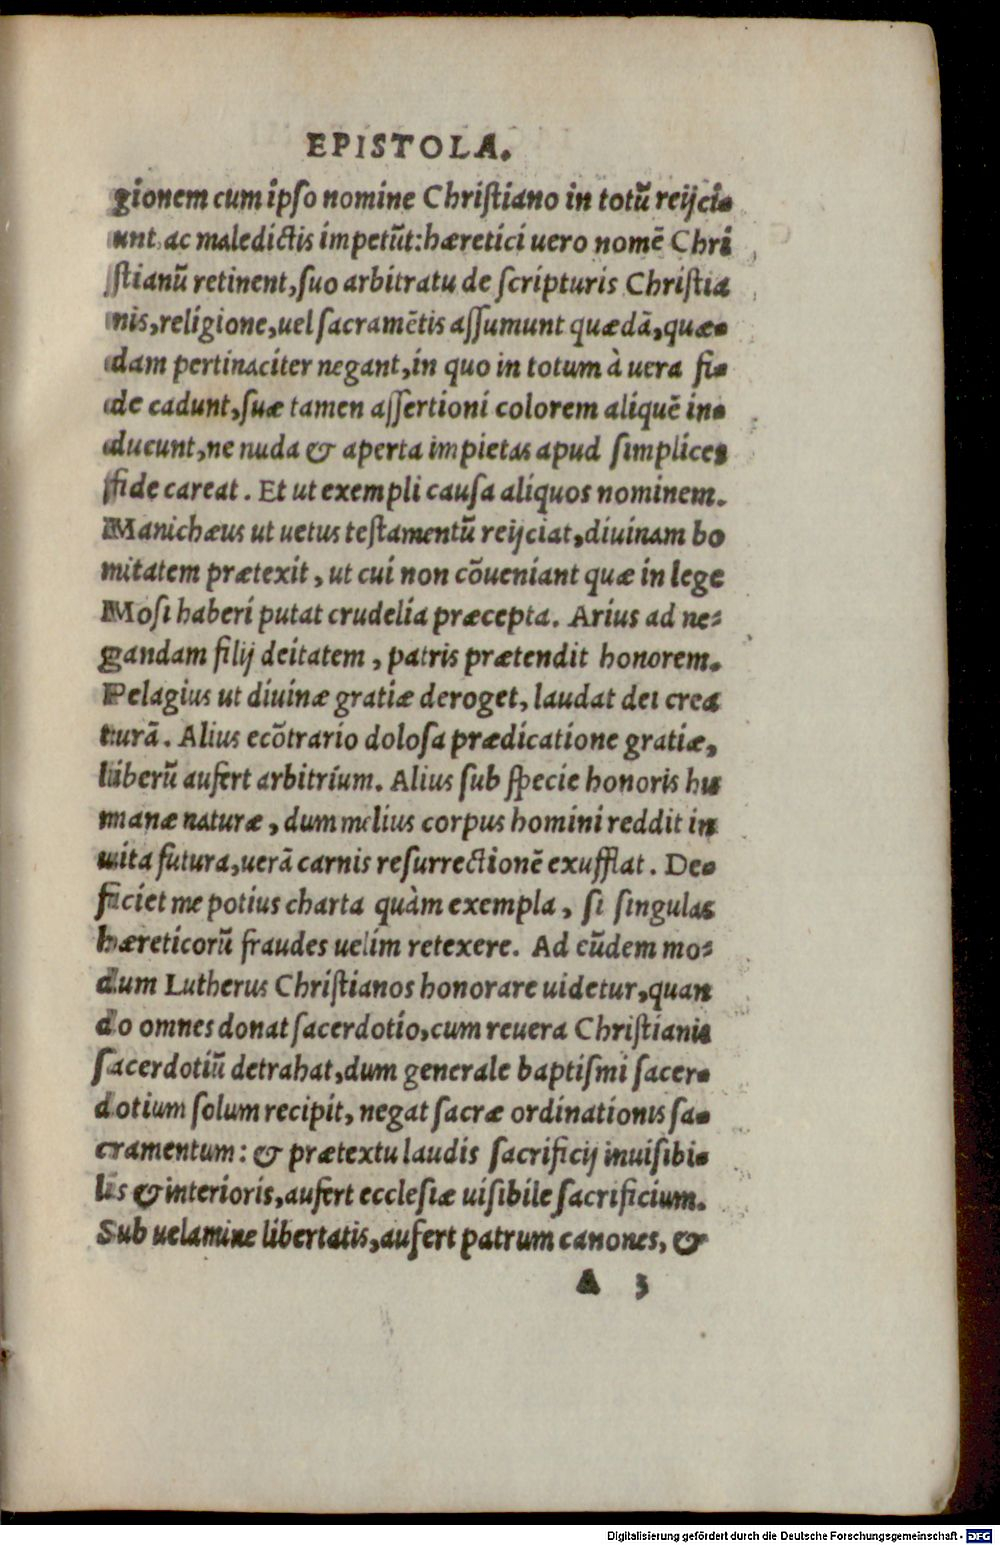 EPISTOLA.
gionem cum ipso nomine Christiano in totũ reijci-
unt ac maledictis impetũt: hæretici uero nomẽ Chri
stianũ retinent, suo arbitratu de scripturis Christia
nis, religione, uel sacramẽtis assumunt quædã, quæ-
dam pertinaciter negant, in quo in totum à uera fi-
de cadunt, suæ tamen assertioni colorem aliquẽ in-
ducunt, ne nuda & aperta impietas apud simplices
fide careat. Et ut exempli causa aliquos nominem.
Manichæus ut uetus testamentũ reijciat, diuinam bo
nitatem prætexit, ut cui non cõueniant quæ in lege
Mosi haberi putat crudelia præcepta. Arius ad ne-
gandam filij deitatem, patris prætendit honorem.
Pelagius ut diuinæ gratiæ deroget, laudat dei crea
turã. Alius ecõtrario dolosa prædicatione gratiæ,
liberũ aufert arbitrium. Alius sub specie honoris hu
manæ naturæ, dum melius corpus homini reddit in
uita futura, uerã carnis resurrectionẽ exufflat. De-
ficiet me potius charta quàm exempla, si singulas
hæreticorũ fraudes uelim retexere. Ad eũdem mo-
dum Lutherus Christianos honorare uidetur, quan
do omnes donat sacerdotio, cum reuera Christianis
sacerdotiũ detrahat, dum generale baptismi sacer-
dotium solum recipit, negat sacræ ordinationis sa-
cramentum: & prætextu laudis sacrificij inuisibi-
lis & interioris, aufert ecclesiæ uisibile sacrificium.
Sub uelamine libertatis, aufert patrum canones, &
A 3
Digitalisierung gefördert durch die Deutsche Forschungsgemeinschaft - DFG